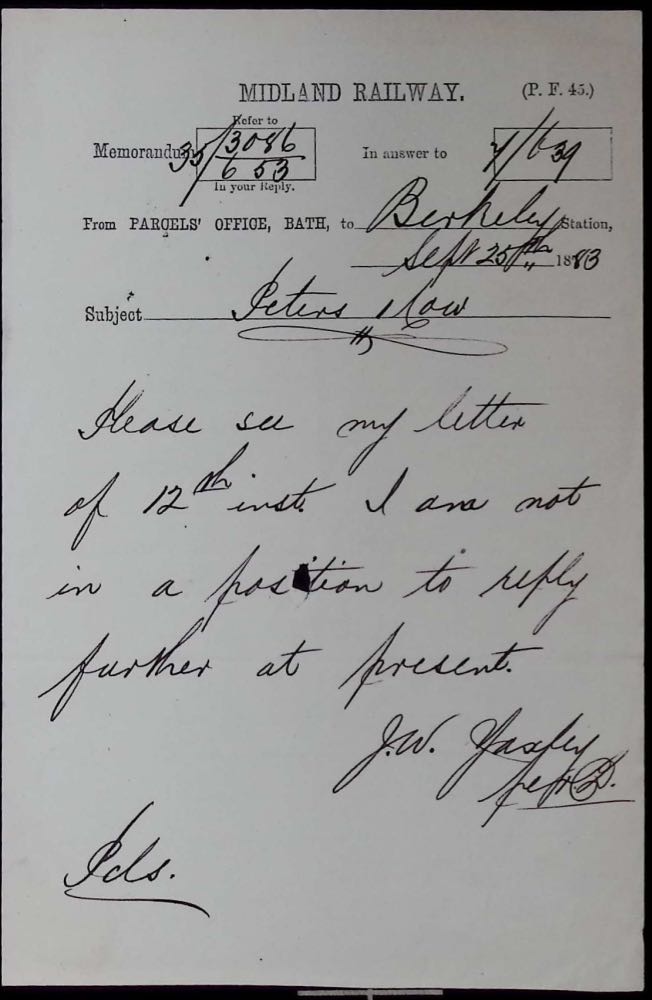 MIDLAND RAILWAY. (P. F. 45.)
Refer to
Memorandum 35/3086 In answer to 7/639
653
In your Reply.
From PARCELS' OFFICE, BATH, to Berkeley Station,
Sept 25th 1883
Subject Peters
Please see my letter
of 12th inst. I am not
in a position to reply
further at present.
J.W. Yaxley
per
Pcls.